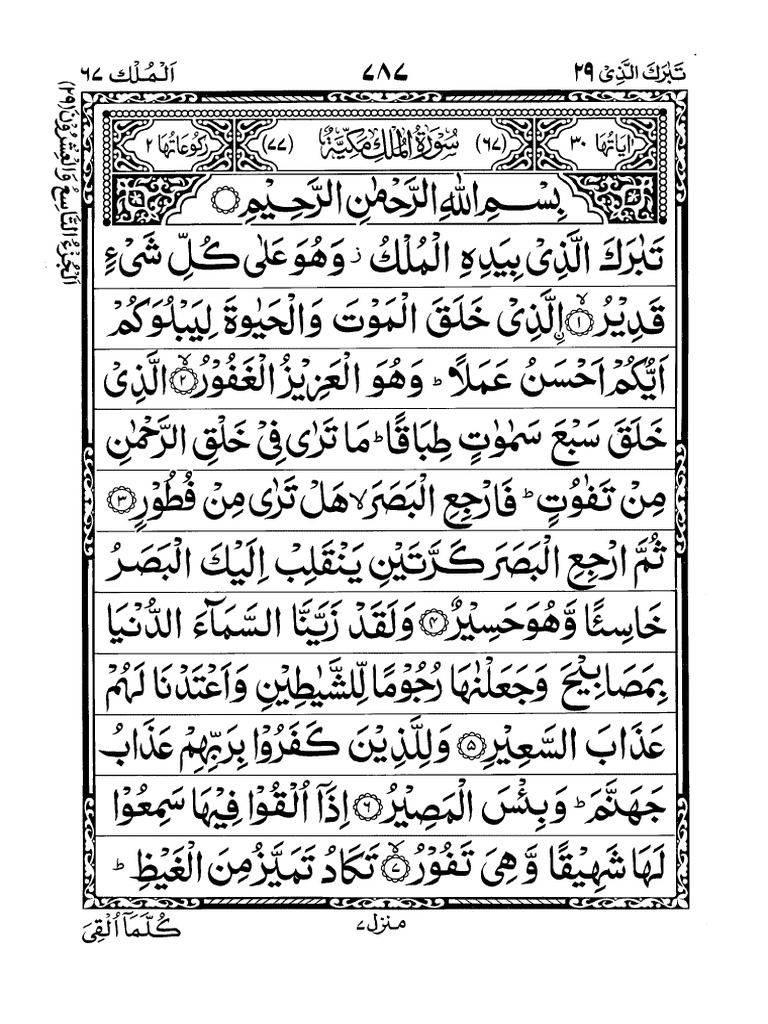 تَبٰرَكَ الَّذِیْ ۲۹
۷۸۷
اَلْمُلْك ۶۷
اٰیَاتُهَا ۳۰
(۶۷) سُوْرَةُ الْمُلْكِ مَكِّیَّةٌ (۷۷)
رُكُوْعَاتُهَا ۲
بِسْمِ اللّٰهِ الرَّحْمٰنِ الرَّحِیْمِ
تَبٰرَكَ الَّذِیْ بِیَدِهِ الْمُلْكُ ز وَهُوَ عَلٰی كُلِّ شَیْءٍ
قَدِیْرُ ۙ۝۱ اِ۟لَّذِیْ خَلَقَ الْمَوْتَ وَالْحَیٰوةَ لِیَبْلُوَكُمْ
اَیُّكُمْ اَحْسَنُ عَمَلًا ؕ وَهُوَ الْعَزِیْزُ الْغَفُوْرُ ۙ۝۲ الَّذِیْ
خَلَقَ سَبْعَ سَمٰوٰتٍ طِبَاقًا ؕ مَا تَرٰی فِیْ خَلْقِ الرَّحْمٰنِ
مِنْ تَفٰوُتٍ ؕ فَارْجِعِ الْبَصَرَ ۙ هَلْ تَرٰی مِنْ فُطُوْرٍ ۝۳
ثُمَّ ارْجِعِ الْبَصَرَ كَرَّتَیْنِ یَنْقَلِبْ اِلَیْكَ الْبَصَرُ
خَاسِئًا وَّهُوَ حَسِیْرٌ ۝۴ وَلَقَدْ زَیَّنَّا السَّمَآءَ الدُّنْیَا
بِمَصَابِیْحَ وَجَعَلْنٰهَا رُجُوْمًا لِّلشَّیٰطِیْنِ وَاَعْتَدْنَا لَهُمْ
عَذَابَ السَّعِیْرِ ۝۵ وَلِلَّذِیْنَ كَفَرُوْا بِرَبِّهِمْ عَذَابُ
جَهَنَّمَ ؕ وَبِئْسَ الْمَصِیْرُ ۝۶ اِذَاۤ اُلْقُوْا فِیْهَا سَمِعُوْا
لَهَا شَهِیْقًا وَّهِیَ تَفُوْرُ ۙ۝۷ تَكَادُ تَمَیَّزُ مِنَ الْغَیْظِ ؕ
اَلْجُزْءُ التَّاسِعُ وَالْعِشْرُوْنَ (۲۹)
منزل ۷
كُلَّمَاۤ اُلْقِیَ